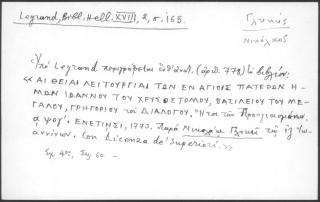 Legrand, Bibl. Hell. XVIII, 2, σ, 165.
Γλυκύς
Νικόλαος
Ὑπὸ Legrand περιγράφεται (ἀριθ. 778) τὸ βιβλίον:
« ΑΙ ΘΕΙΑΙ ΛΕΙΤΟΥΡΓΙΑΙ ΤΩΝ ΕΝ ΑΓΙΟΙΣ ΠΑΤΕΡΩΝ Η-
ΜΩΝ ΙΩΑΝΝΟΥ ΤΟΥ ΧΡΥΣΟΣΤΟΜΟΥ, ΒΑΣΙΛΕΙΟΥ ΤΟΥ ΜΕ-
ΓΑΛΟΥ, ΓΡΗΓΟΡΙΟΥ τοῦ ΔΙΑΛΟΓΟΥ. Ἤτοι τῶν Προηγιασμένων,
αψογ΄. ΕΝΕΤΙΗΣΙ, 1773. Παρὰ Νικολάῳ Γλυκεῖ τῷ ἐξ Ἰωα-
ννίνων. Con Licenza de' Superiori. »
Σχ. 4ον, Σελ. 60. —